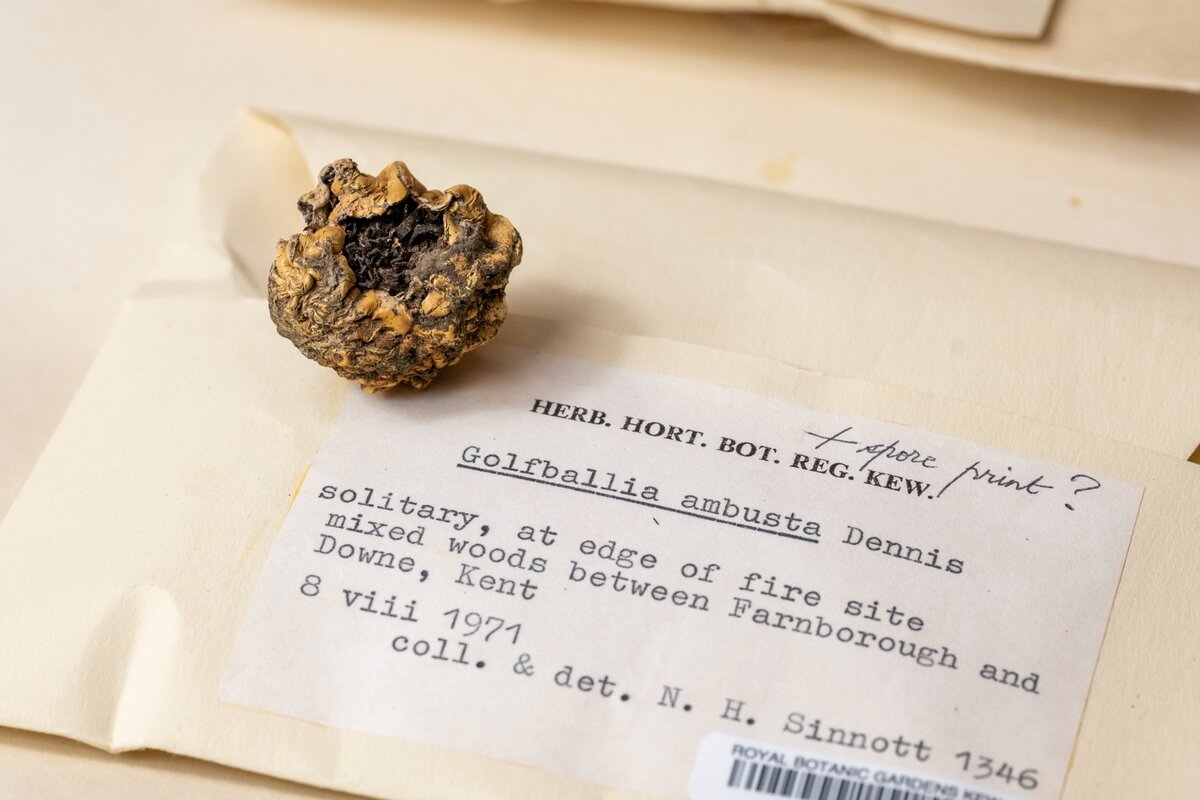 + spore print ?
HERB. HORT. BOT. REG. KEW.
Golfballia ambusta Dennis
solitary, at edge of fire site
mixed woods between Farnborough and
Downe, Kent
8 viii 1971
coll. & det. N. H. Sinnott 1346
ROYAL BOTANIC GARDENS KEW